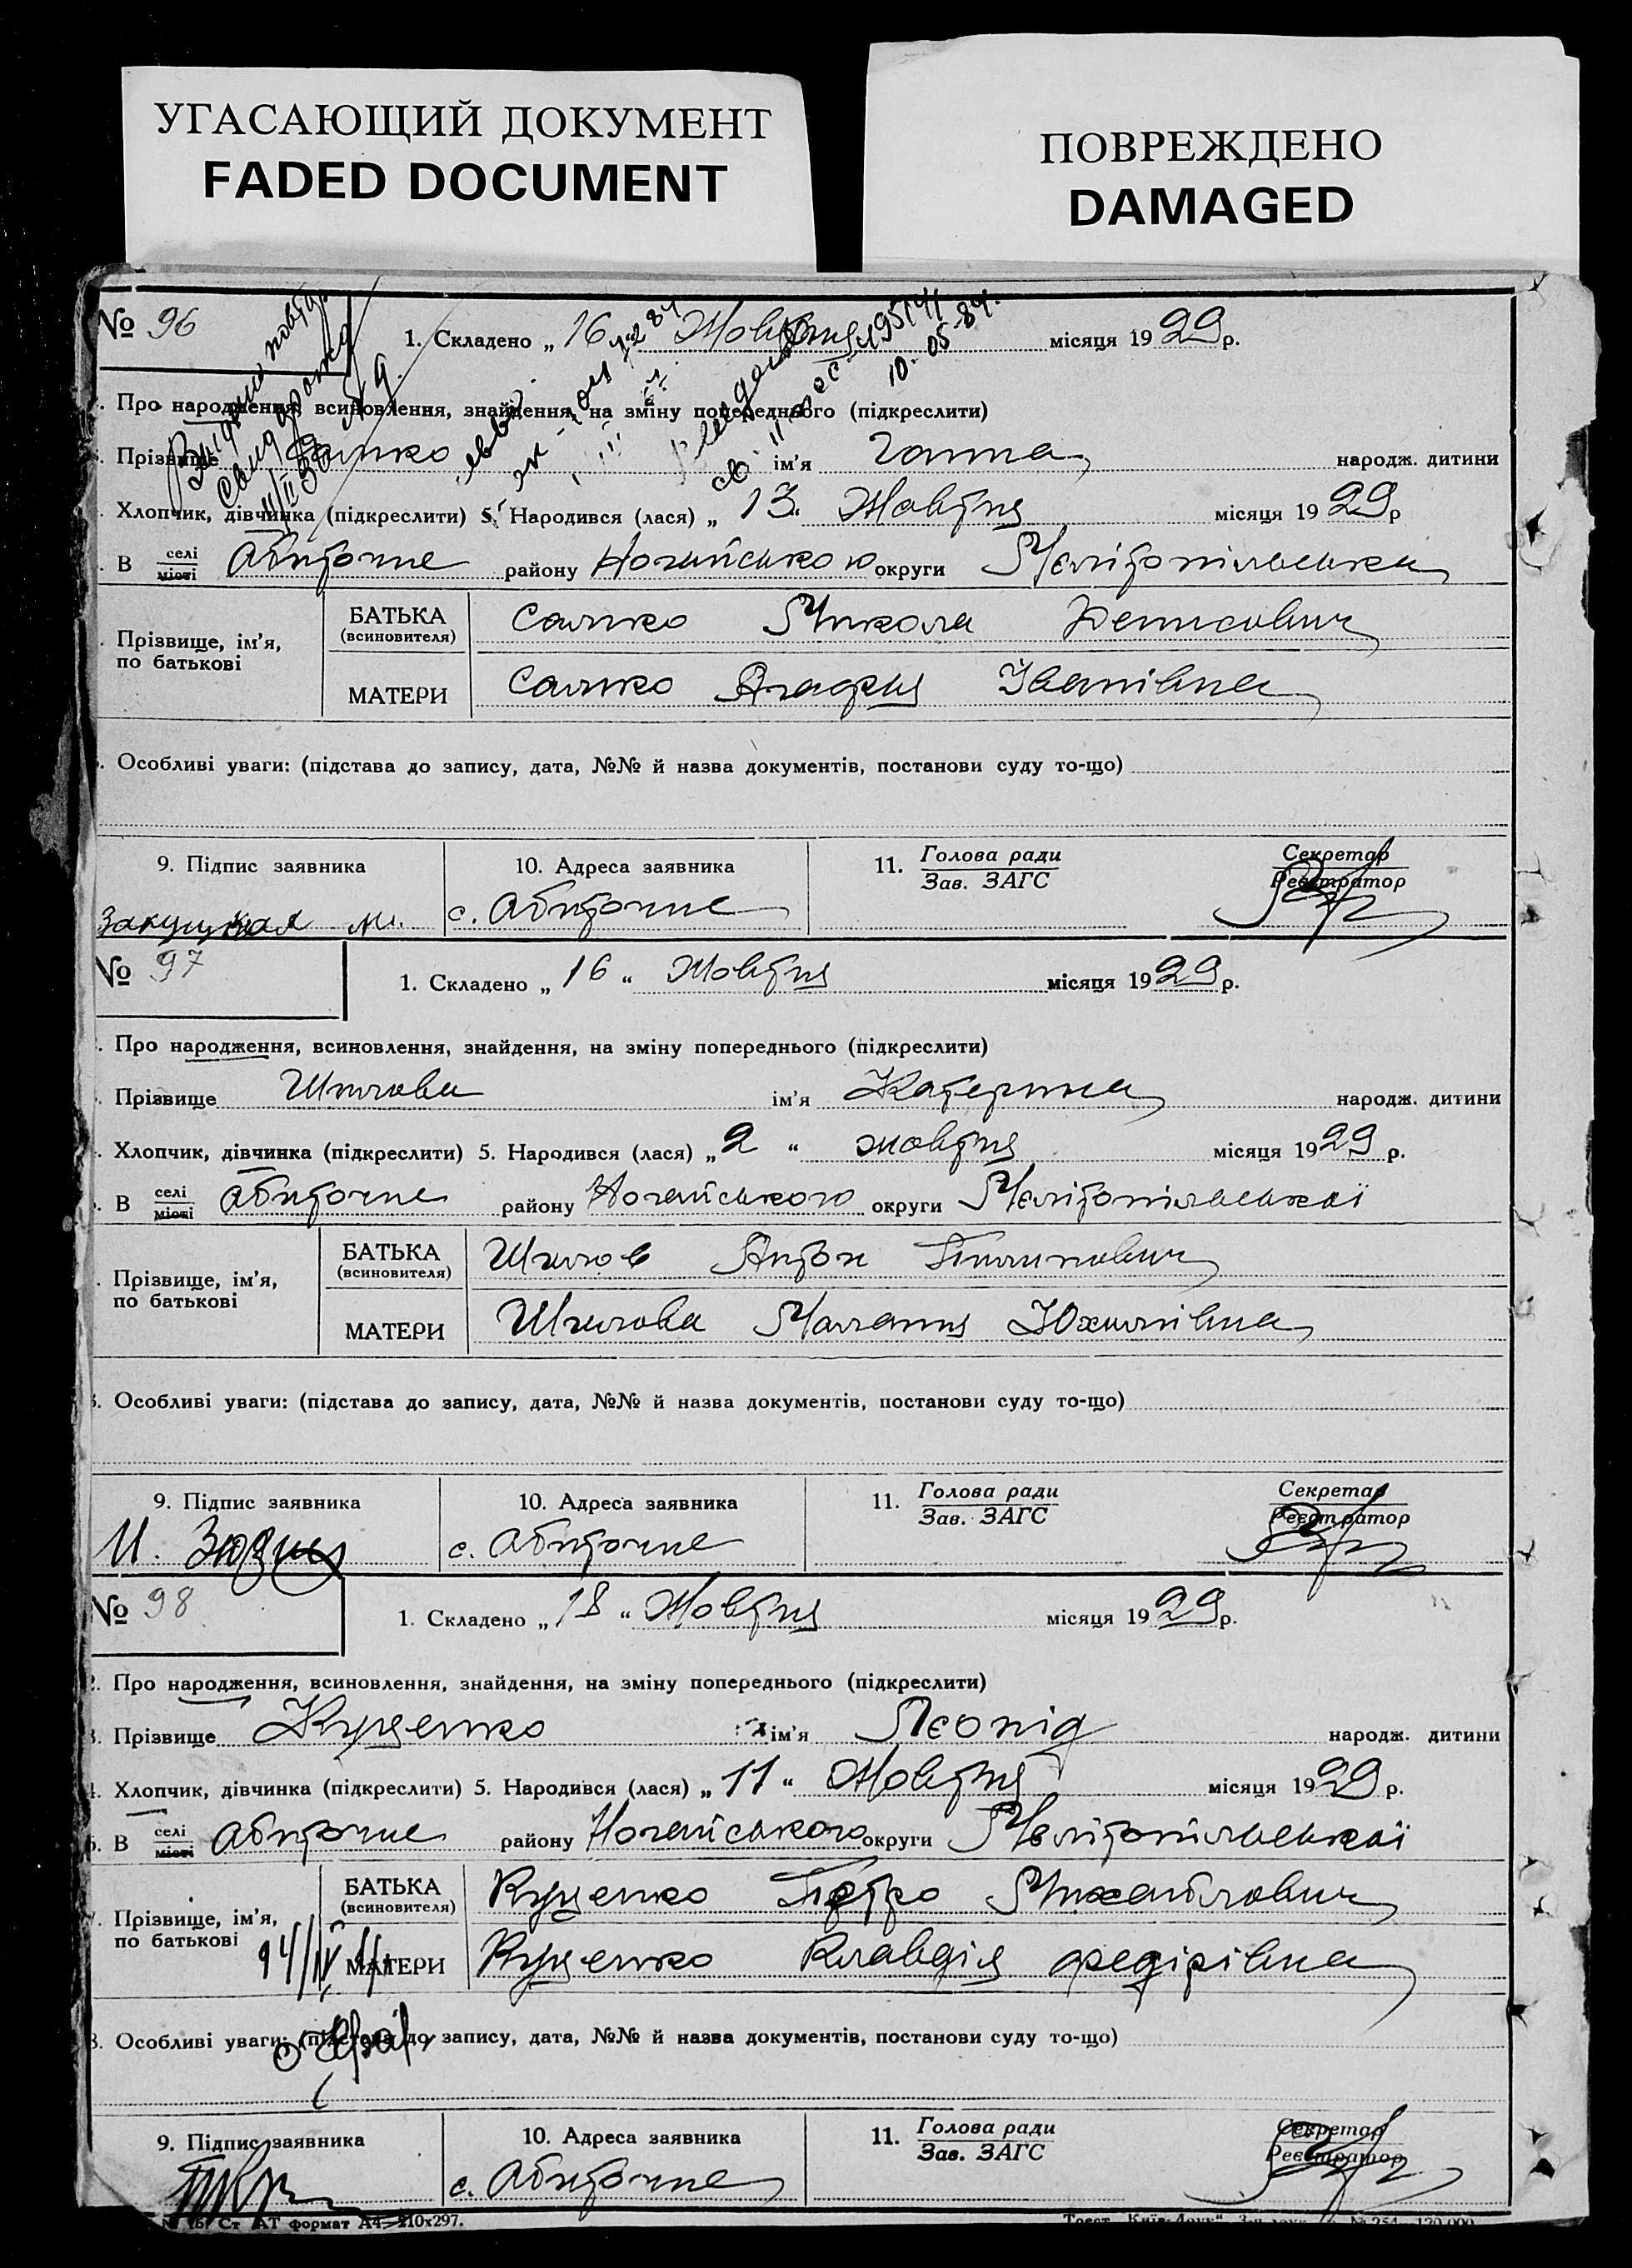 УГАСАЮЩИЙ ДОКУМЕНТ
FADED DOCUMENT
ПОВРЕЖДЕНО
DAMAGED
№ 96
1. Складено „ 16 " Жовтня місяця 1929 р.
Про народження, всиновлення, знайдення, на зміну попереднього (підкреслити)
Прізвище Салко ім'я Ганна народж. дитини
Хлопчик, дівчинка (підкреслити) 5. Народився (лася) „ 13 " Жовтня місяця 1929 р
В селі міоті Абиточне району Ногайського округи Мелітопільська
Прізвище, ім'я, по батькові
БАТЬКА (всиновителя) Салко Микола Денисович
МАТЕРИ Салко Агафия Іванівна
Особливі уваги: (підстава до запису, дата, №№ й назва документів, постанови суду то-що)
9. Підпис заявника
10. Адреса заявника
11. Голова ради Зав. ЗАГС
Секретар Реєстратор
с. Абиточне
№ 97
1. Складено „ 16 " Жовтня місяця 1929 р.
Про народження, всиновлення, знайдення, на зміну попереднього (підкреслити)
Прізвище Шилова ім'я Катерина народж. дитини
Хлопчик, дівчинка (підкреслити) 5. Народився (лася) „ 2 " жовтня місяця 1929 р.
В селі міоті Абиточне району Ногайського округи Мелітопільської
Прізвище, ім'я, по батькові
БАТЬКА (всиновителя) Шилов Антон Пилипович
МАТЕРИ Шилова Маланя Юхимівна
Особливі уваги: (підстава до запису, дата, №№ й назва документів, постанови суду то-що)
9. Підпис заявника
10. Адреса заявника
11. Голова ради Зав. ЗАГС
Секретар Реєстратор
с. Абиточне
№ 98
1. Складено „ 18 " Жовтня місяця 1929 р.
2. Про народження, всиновлення, знайдення, на зміну попереднього (підкреслити)
3. Прізвище Куценко ім'я Леонід народж. дитини
4. Хлопчик, дівчинка (підкреслити) 5. Народився (лася) „ 11 " Жовтня місяця 1929 р.
6. В селі міоті Абиточне району Ногайського округи Мелітопільської
7. Прізвище, ім'я, по батькові
БАТЬКА (всиновителя) Куценко Петро Михайлович
МАТЕРИ Куценко Клавдія Федірівна
8. Особливі уваги: (підстава до запису, дата, №№ й назва документів, постанови суду то-що)
9. Підпис заявника
10. Адреса заявника
11. Голова ради Зав. ЗАГС
Секретар Реєстратор
с. Абиточне
Ст АТ формат А4—210х297.